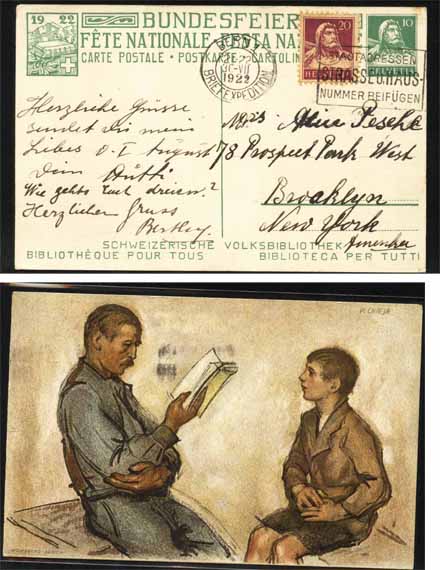 1922
BUNDESFEIER
FÊTE NATIONALE · FESTA NA
CARTE POSTALE · POSTKARTE · CARTOLIN
20
HELVETIA
10
HELVETIA
VII
1922
BRIEFEXPEDITION
STADTADRESSEN
STRASSE U HAUS-
NUMMER BEIFÜGEN
Herzliche Grüsse
sendet dir mein
Liebes v. I August
Dein
Wie gehts Euch dreien?
Herzlichen Gruss
Alice Peschke
78 Prospect Park West
Brooklyn
New York
Amerika
SCHWEIZERISCHE VOLKSBIBLIOTHEK
BIBLIOTHÈQUE POUR TOUS BIBLIOTECA PER TUTTI
P. CHIESA